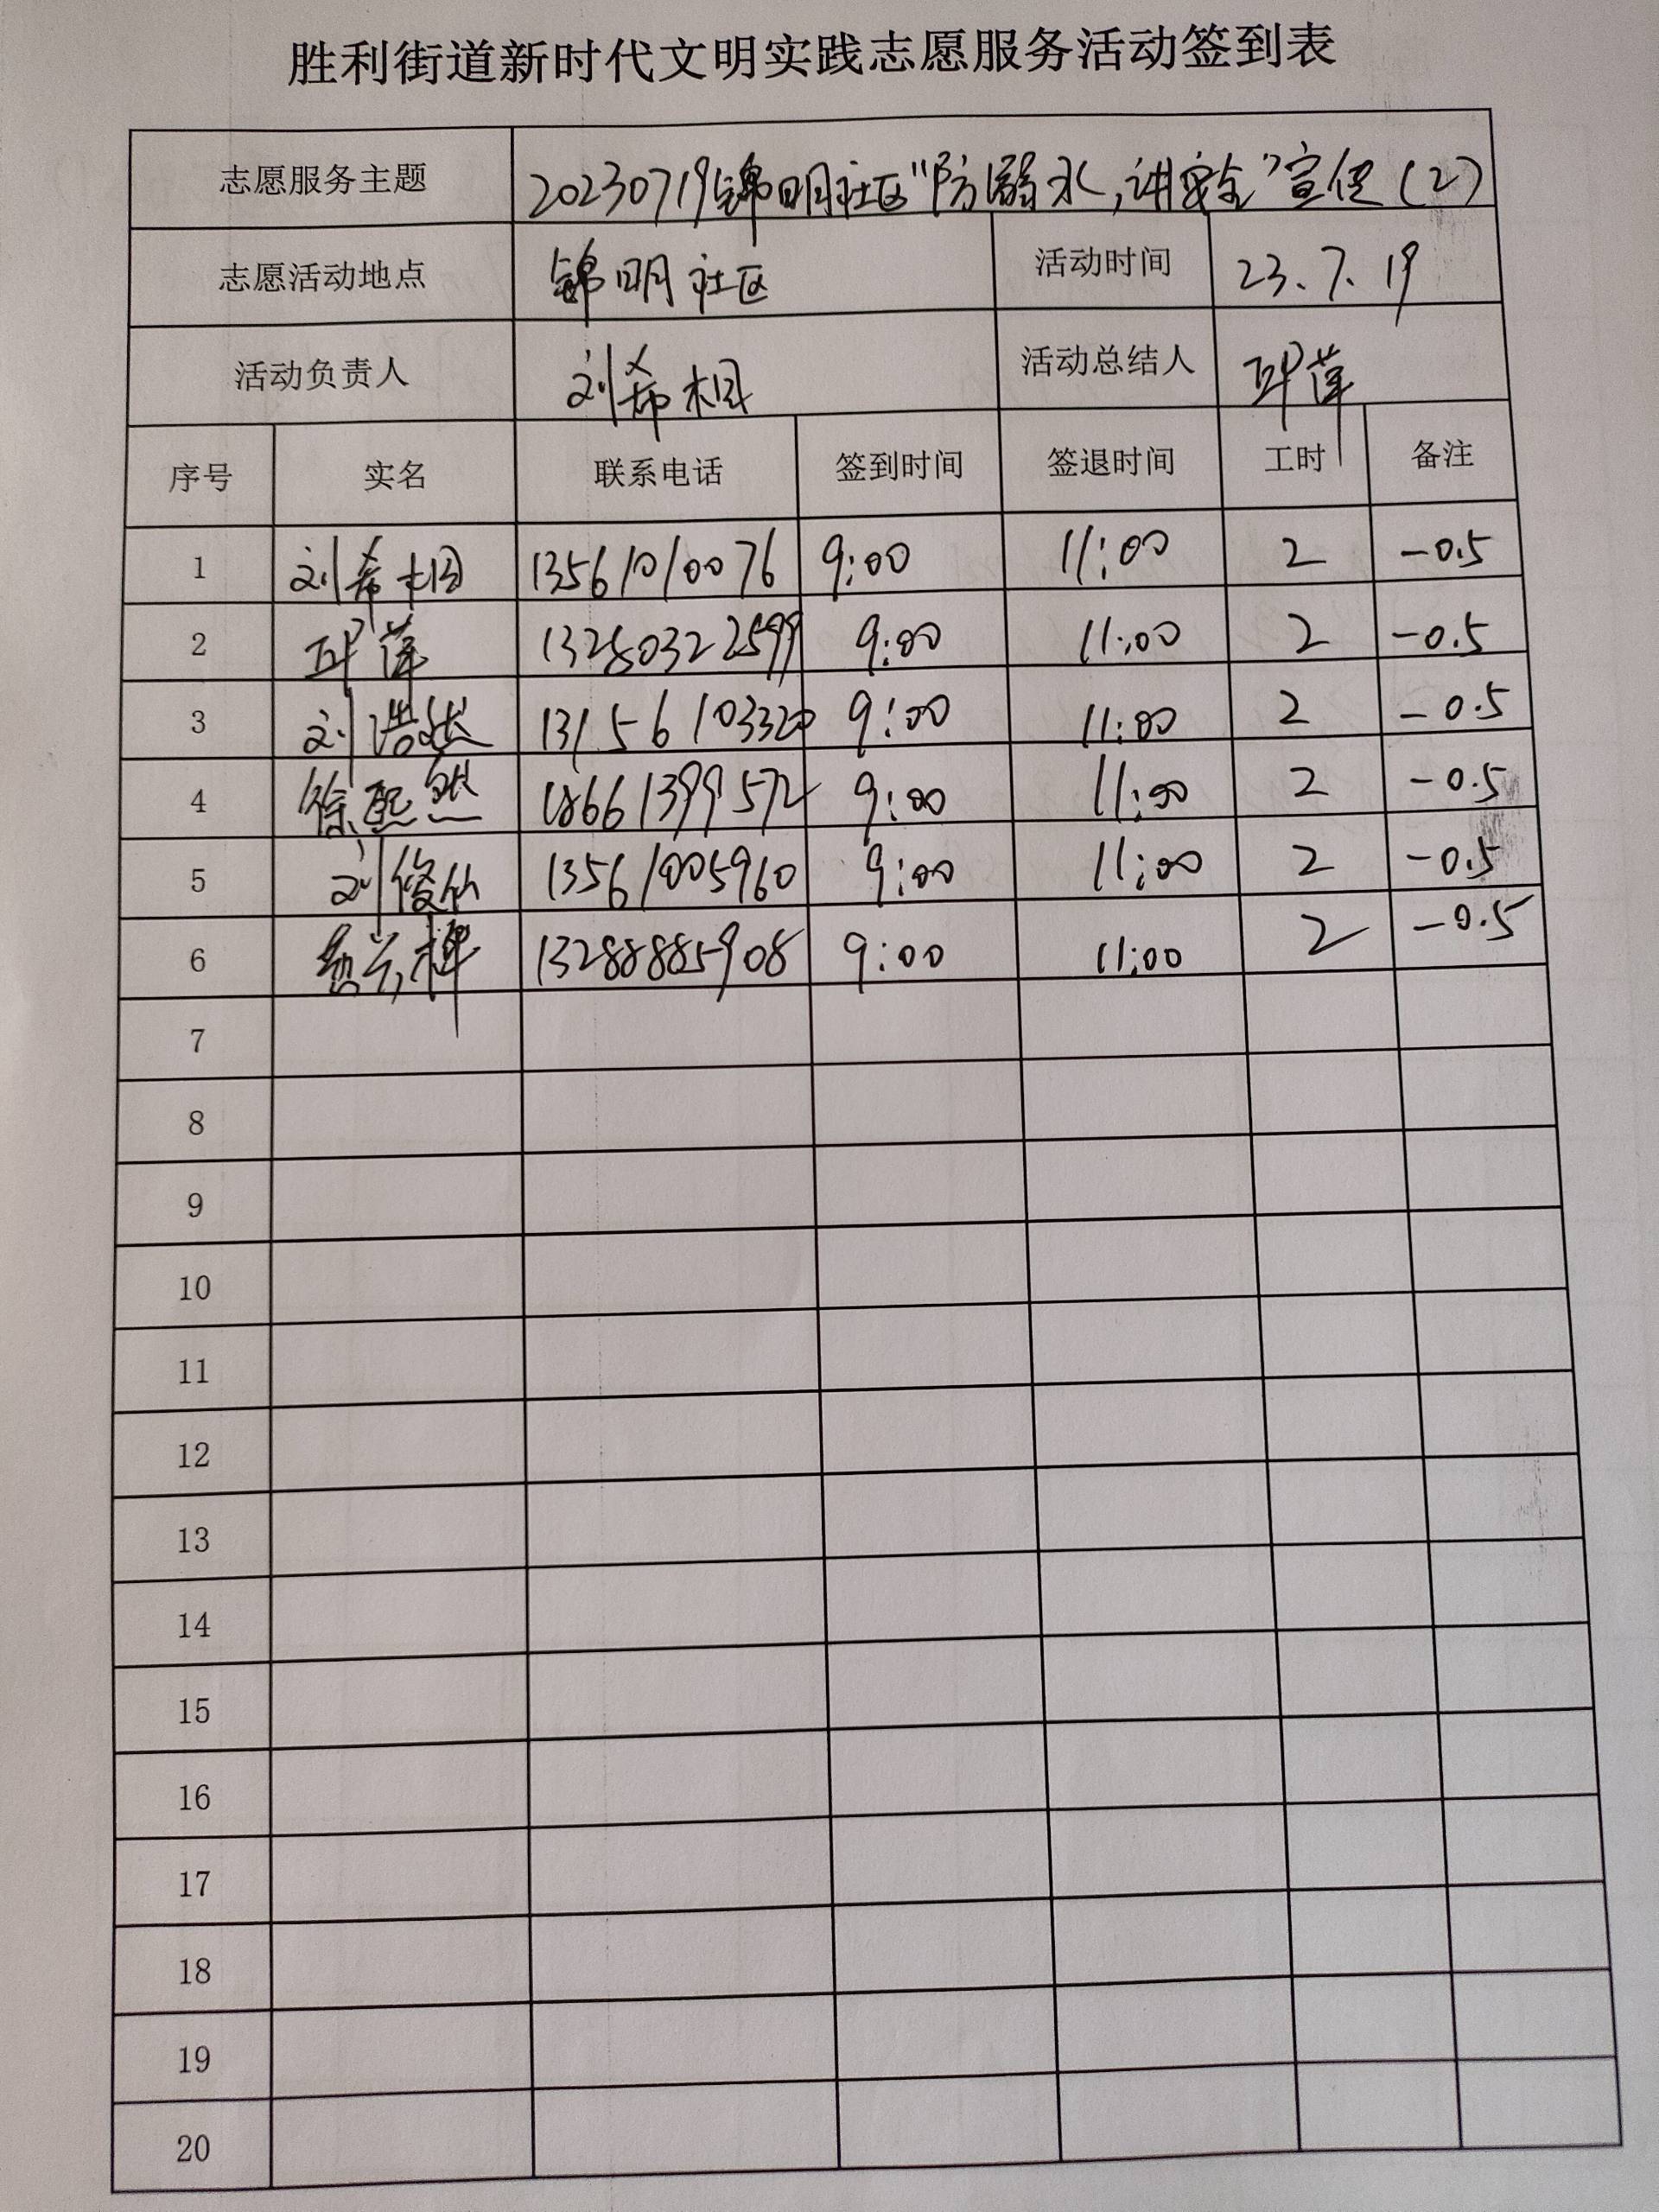 胜利街道新时代文明实践志愿服务活动签到表
志愿服务主题 20230719锦明社区“防溺水,讲安全”宣传(2)
志愿活动地点 锦明社区 活动时间 23.7.19
活动负责人 刘希相 活动总结人
序号 实名 联系电话 签到时间 签退时间 工时 备注
1 刘希相 13561010076 9:00 11:00 2 -0.5
2 13280322599 9:00 11:00 2 -0.5
3 刘浩然 13156103320 9:00 11:00 2 -0.5
4 徐熙然 18661399572 9:00 11:00 2 -0.5
5 刘俊仙 13561005960 9:00 11:00 2 -0.5
6 13288885908 9:00 11:00 2 -0.5
7
8
9
10
11
12
13
14
15
16
17
18
19
20